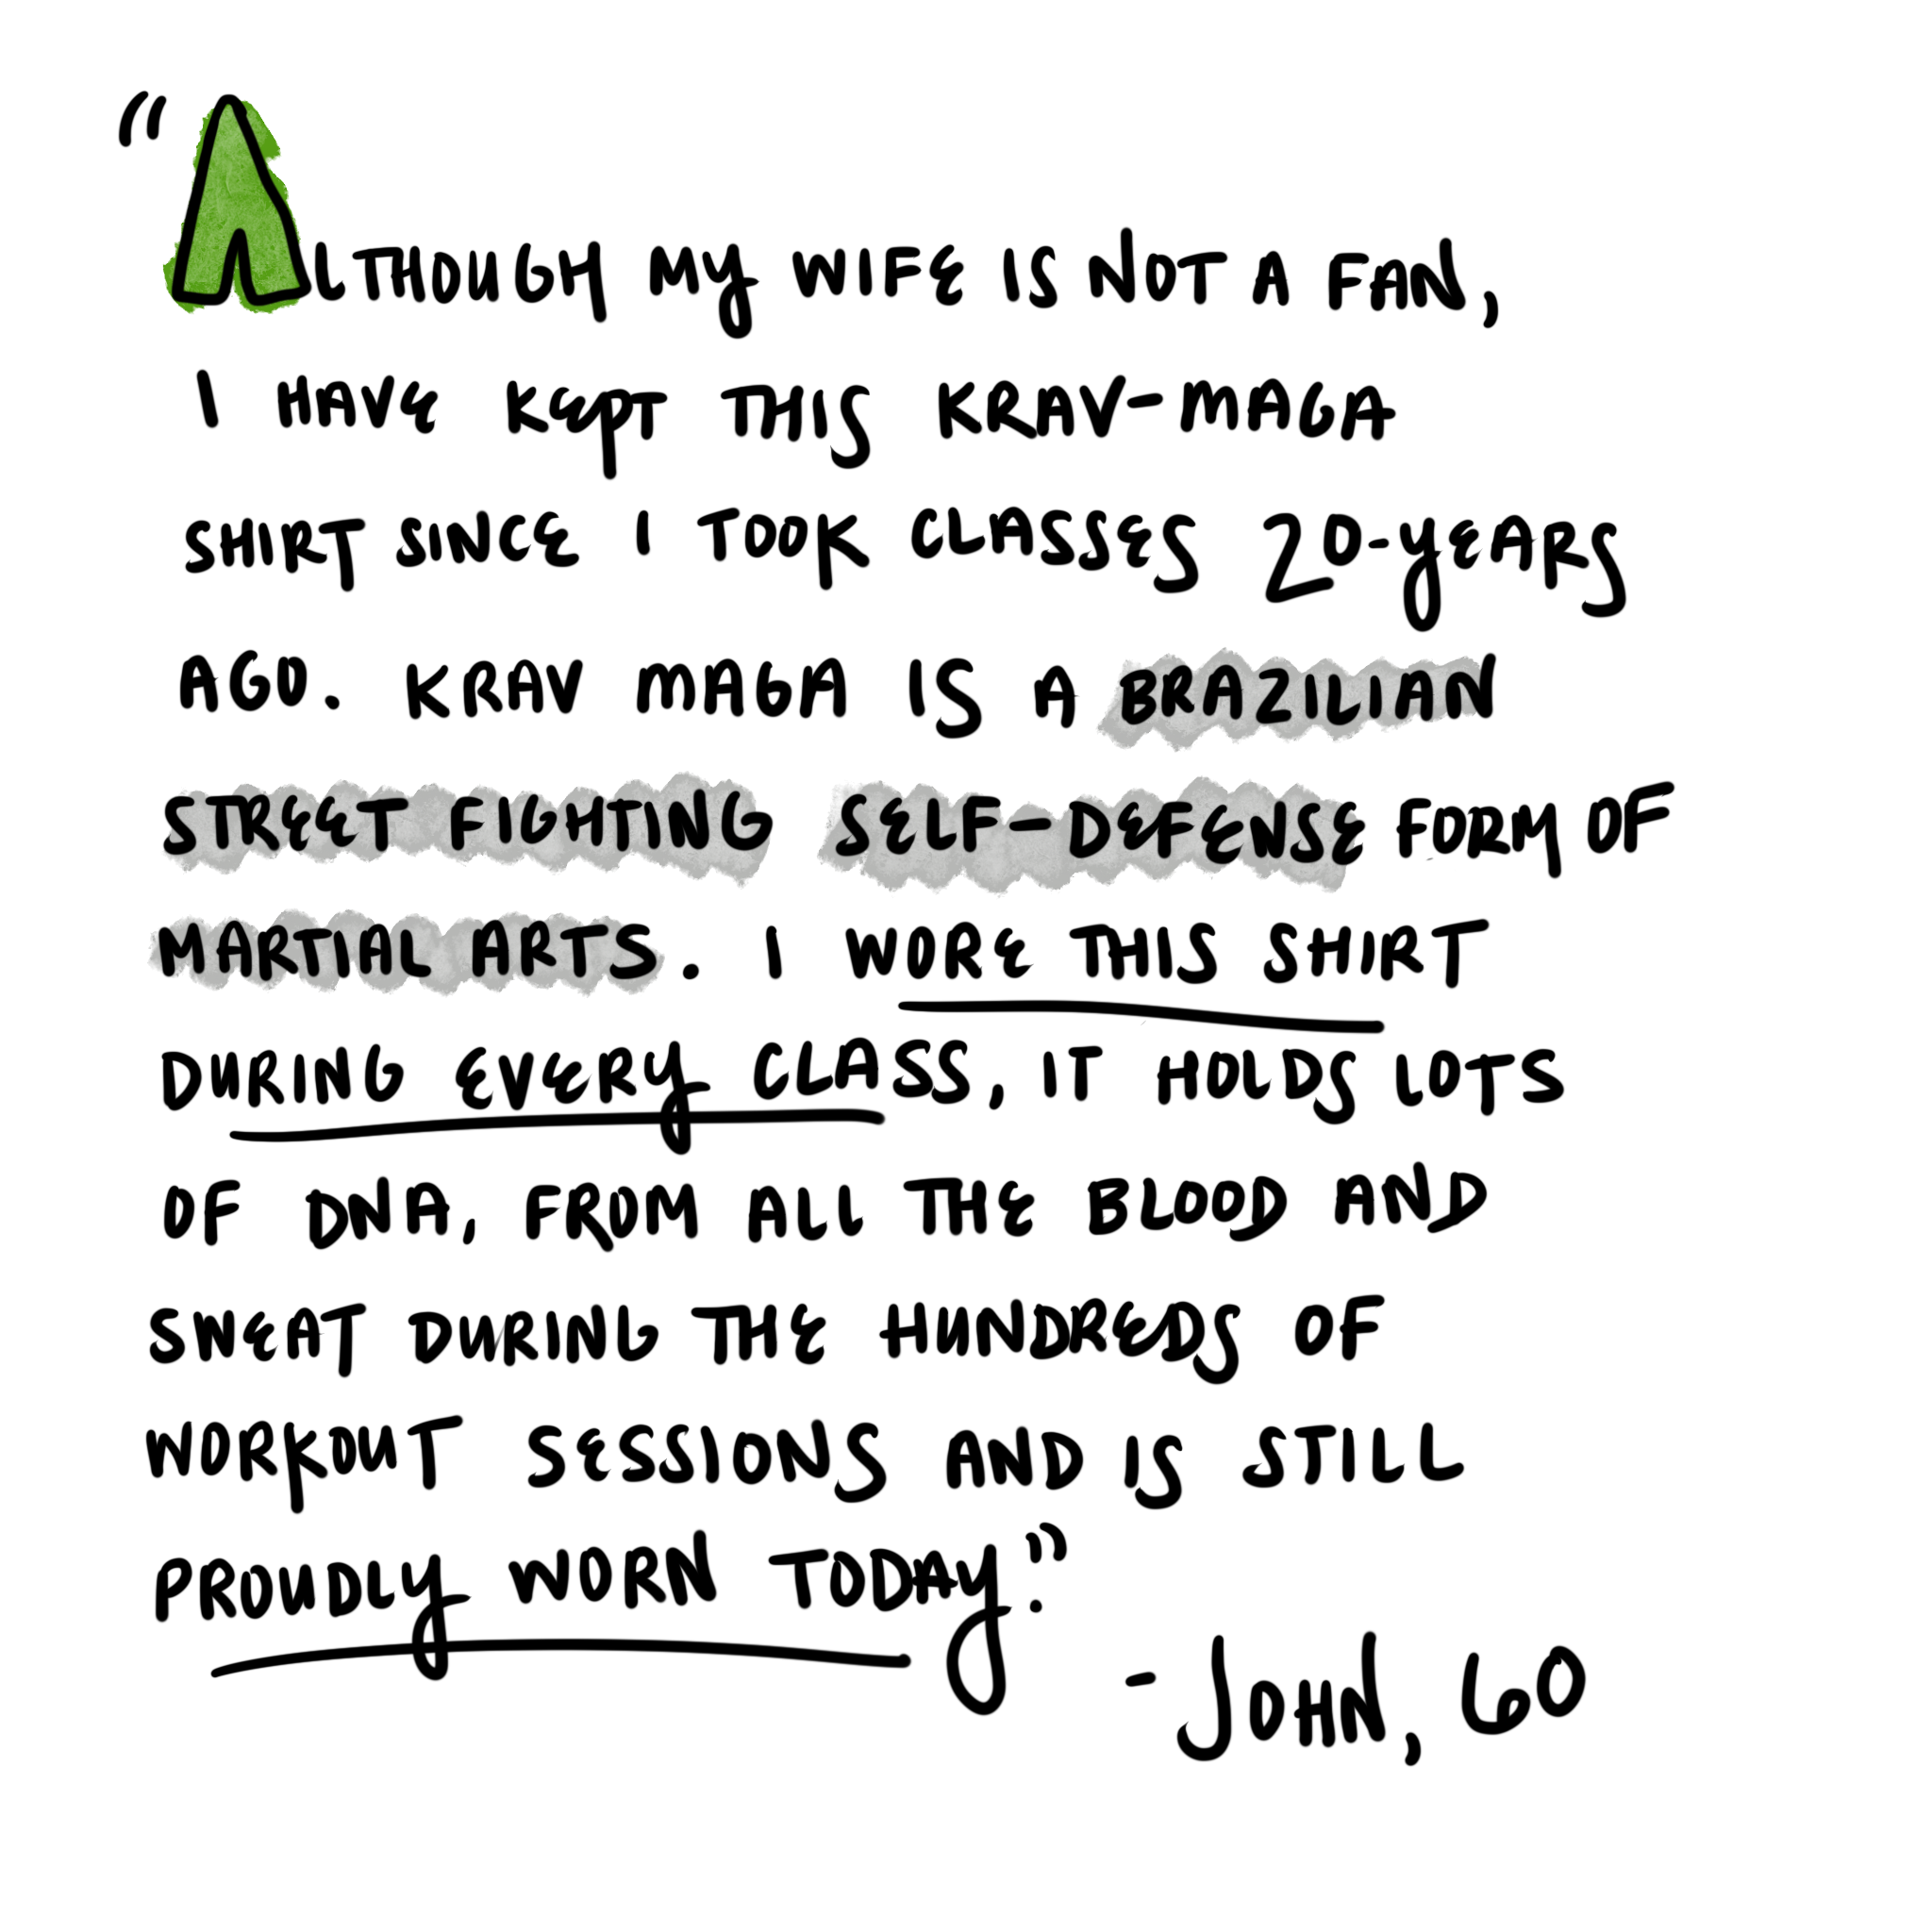 "ALTHOUGH MY WIFE IS NOT A FAN,
I HAVE KEPT THIS KRAV-MAGA
SHIRT SINCE I TOOK CLASSES 20-YEARS
AGO. KRAV MAGA IS A BRAZILIAN
STREET FIGHTING SELF-DEFENSE FORM OF
MARTIAL ARTS. I WORE THIS SHIRT
DURING EVERY CLASS, IT HOLDS LOTS
OF DNA, FROM ALL THE BLOOD AND
SWEAT DURING THE HUNDREDS OF
WORKOUT SESSIONS AND IS STILL
PROUDLY WORN TODAY."
-JOHN, 60